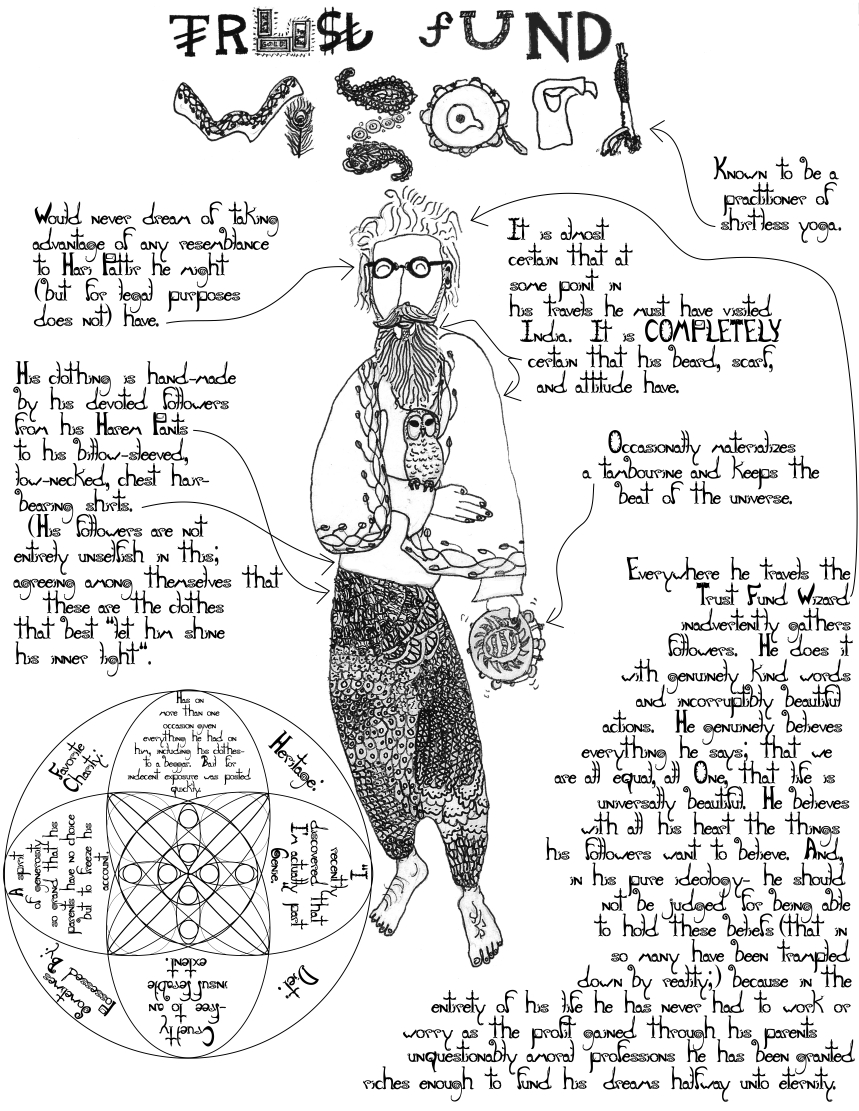 TRU$T FUND
WIZARD
Known to be a
practitioner of
shirtless yoga.
Would never dream of taking
advantage of any resemblance
to Hari Pattir he might
(but for legal purposes
does not) have.
It is almost
certain that at
some point in
his travels he must have visited
India. It is COMPLETELY
certain that his beard, scarf,
and attitude have.
His clothing is hand-made
by his devoted followers
from his Harem Pants
to his billow-sleeved,
low-necked, chest hair-
bearing shirts.
(His followers are not
entirely unselfish in this;
agreeing among themselves that
these are the clothes
that best "let him shine
his inner light".
Occasionally materializes
a tambourine and keeps the
beat of the universe.
Everywhere he travels the
Trust Fund Wizard
inadvertently gathers
followers. He does it
with genuinely kind words
and incorruptibly beautiful
actions. He genuinely believes
everything he says; that we
are all equal, all One, that life is
universally beautiful. He believes
with all his heart the things
his followers want to believe. And,
in his pure ideology- he should
not be judged for being able
to hold these beliefs (that in
so many have been trampled
down by reality;) because in the
entirety of his life he has never had to work or
worry as the profit gained through his parents
unquestionably amoral professions he has been granted
riches enough to fund his dreams halfway unto eternity.
Favorite
Charity:
Has on
more than one
occasion given
everything he had on
him, including his clothes-
to a beggar. Bail for
indecent exposure was posted
quickly.
Heritage:
"I
recently
discovered that
I'm actually part
Gnome.
Diet:
Cruelty
-free to an
insufferable
extent.
Sometimes
Possessed By:
A spirit
of generosity
so grand that his
parents have no choice
but to freeze his
account.